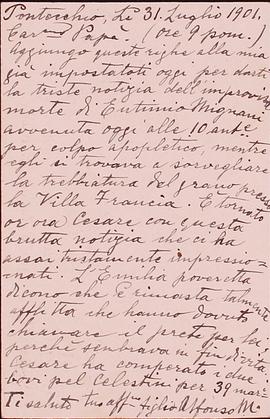 Pontecchio, Lì 31. Luglio 1901.
Car.mo Papà. (Ore 9 pom.)
Aggiungo queste righe alla mia
già impostatoti oggi per darti
la triste notizia dell'improvvisa
morte di Eutimio Mignani
avvenuta oggi alle 10 ant.e
per colpo apopletico, mentre
egli si trovava a sorvegliare
la trebbiatura del grano presso
la Villa Francia. È tornato
or ora Cesare con questa
brutta notizia che ci ha
assai tristamente impressio=
nati. L'Emilia poveretta
dicono che è rimasta talmente
afflitta che hanno dovuto
chiamare il prete per lei,
perchè sembrava in fin di vita.
Cesare ha comperato i due
bovi pel Celestini per 39 mar.
Ti saluto tuo aff.mo figlio Alfonso M.